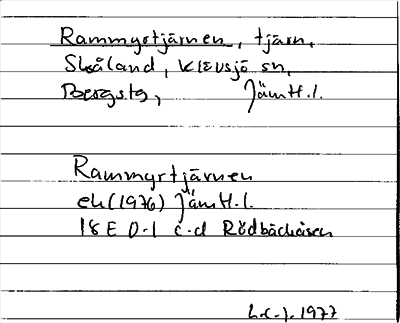 Rammyrtjärnen, tjärn,
Skåland, Klövsjö sn,
Bergstg, Jämtl.l.
Rammyrtjärnen
ek(1976) Jämtl.l.
18E 0-1 c-d Rödbäckåsen
1977